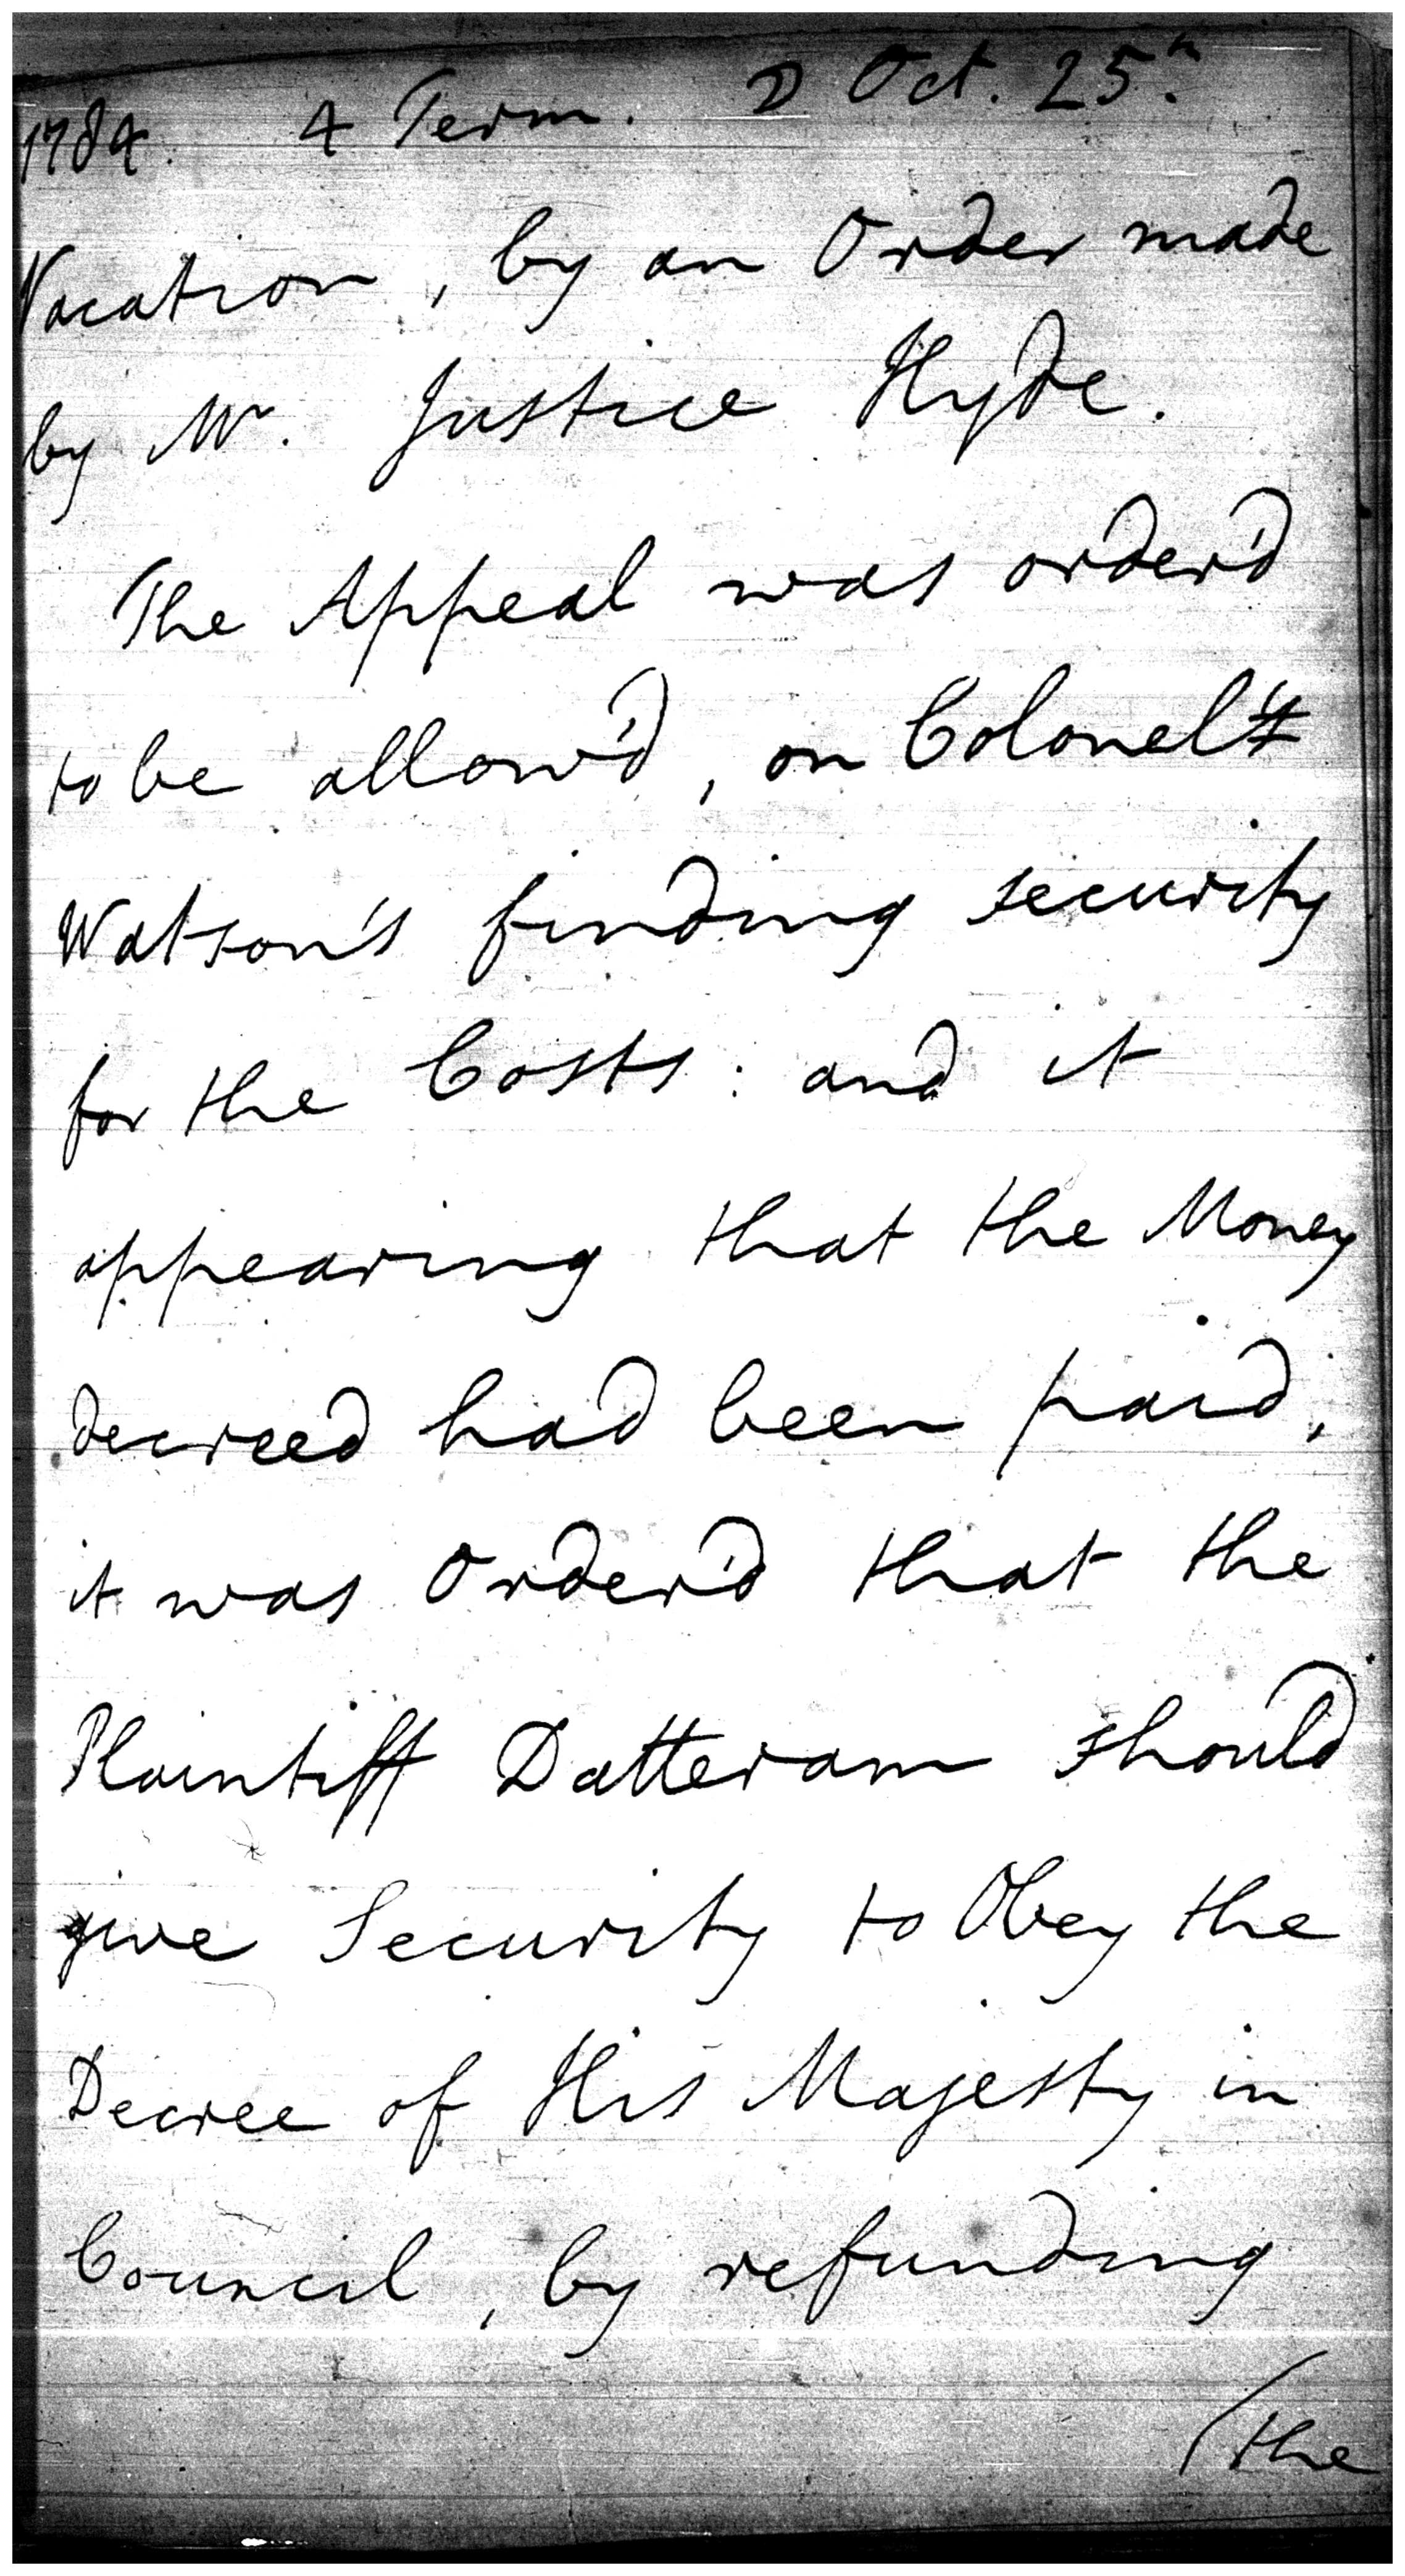 1784. 4 Term. ☽ Oct. 25th.
Vacation, by an Order made
by Mr. Justice Hyde.
The Appeal was order'd
to be allow'd, on Colonel
Watson's finding security
for the Costs: and it
appearing that the Money
decreed had been paid;
it was Order'd that the
Plaintiff Datteram should
give Security to Obey the
Decree of His Majesty in
Council, by refunding
(the